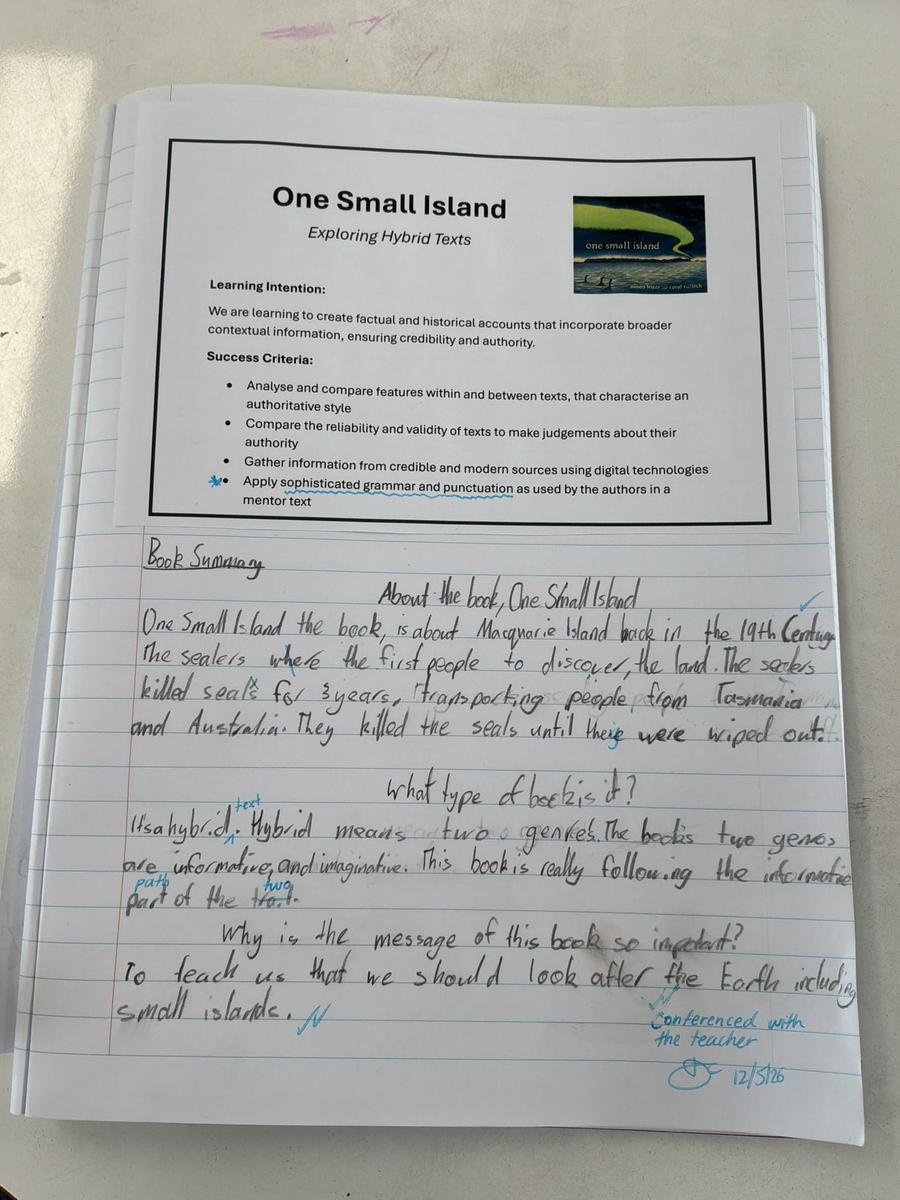 One Small Island
Exploring Hybrid Texts
one small island
alison lester and coral tulloch
Learning Intention:
We are learning to create factual and historical accounts that incorporate broader
contextual information, ensuring credibility and authority.
Success Criteria:
• Analyse and compare features within and between texts, that characterise an
authoritative style
• Compare the reliability and validity of texts to make judgements about their
authority
• Gather information from credible and modern sources using digital technologies
• Apply sophisticated grammar and punctuation as used by the authors in a
mentor text
Book Summary
About the book, One Small Island
One Small Island the book, is about Macquarie Island back in the 19th Century
The sealers where the first people to discover, the land. The sealers
killed seals for 3 years, transporting people from Tasmania
and Australia. They killed the seals until they were wiped out.
What type of book is it?
text
Its a hybrid. Hybrid means two genres. The books two genres
are informative, and imaginative. This book is really following the informative
path two
part of the
Why is the message of this book so important?
To teach us that we should look after the Earth including
small islands.
Conferenced with
the teacher
12/5/26